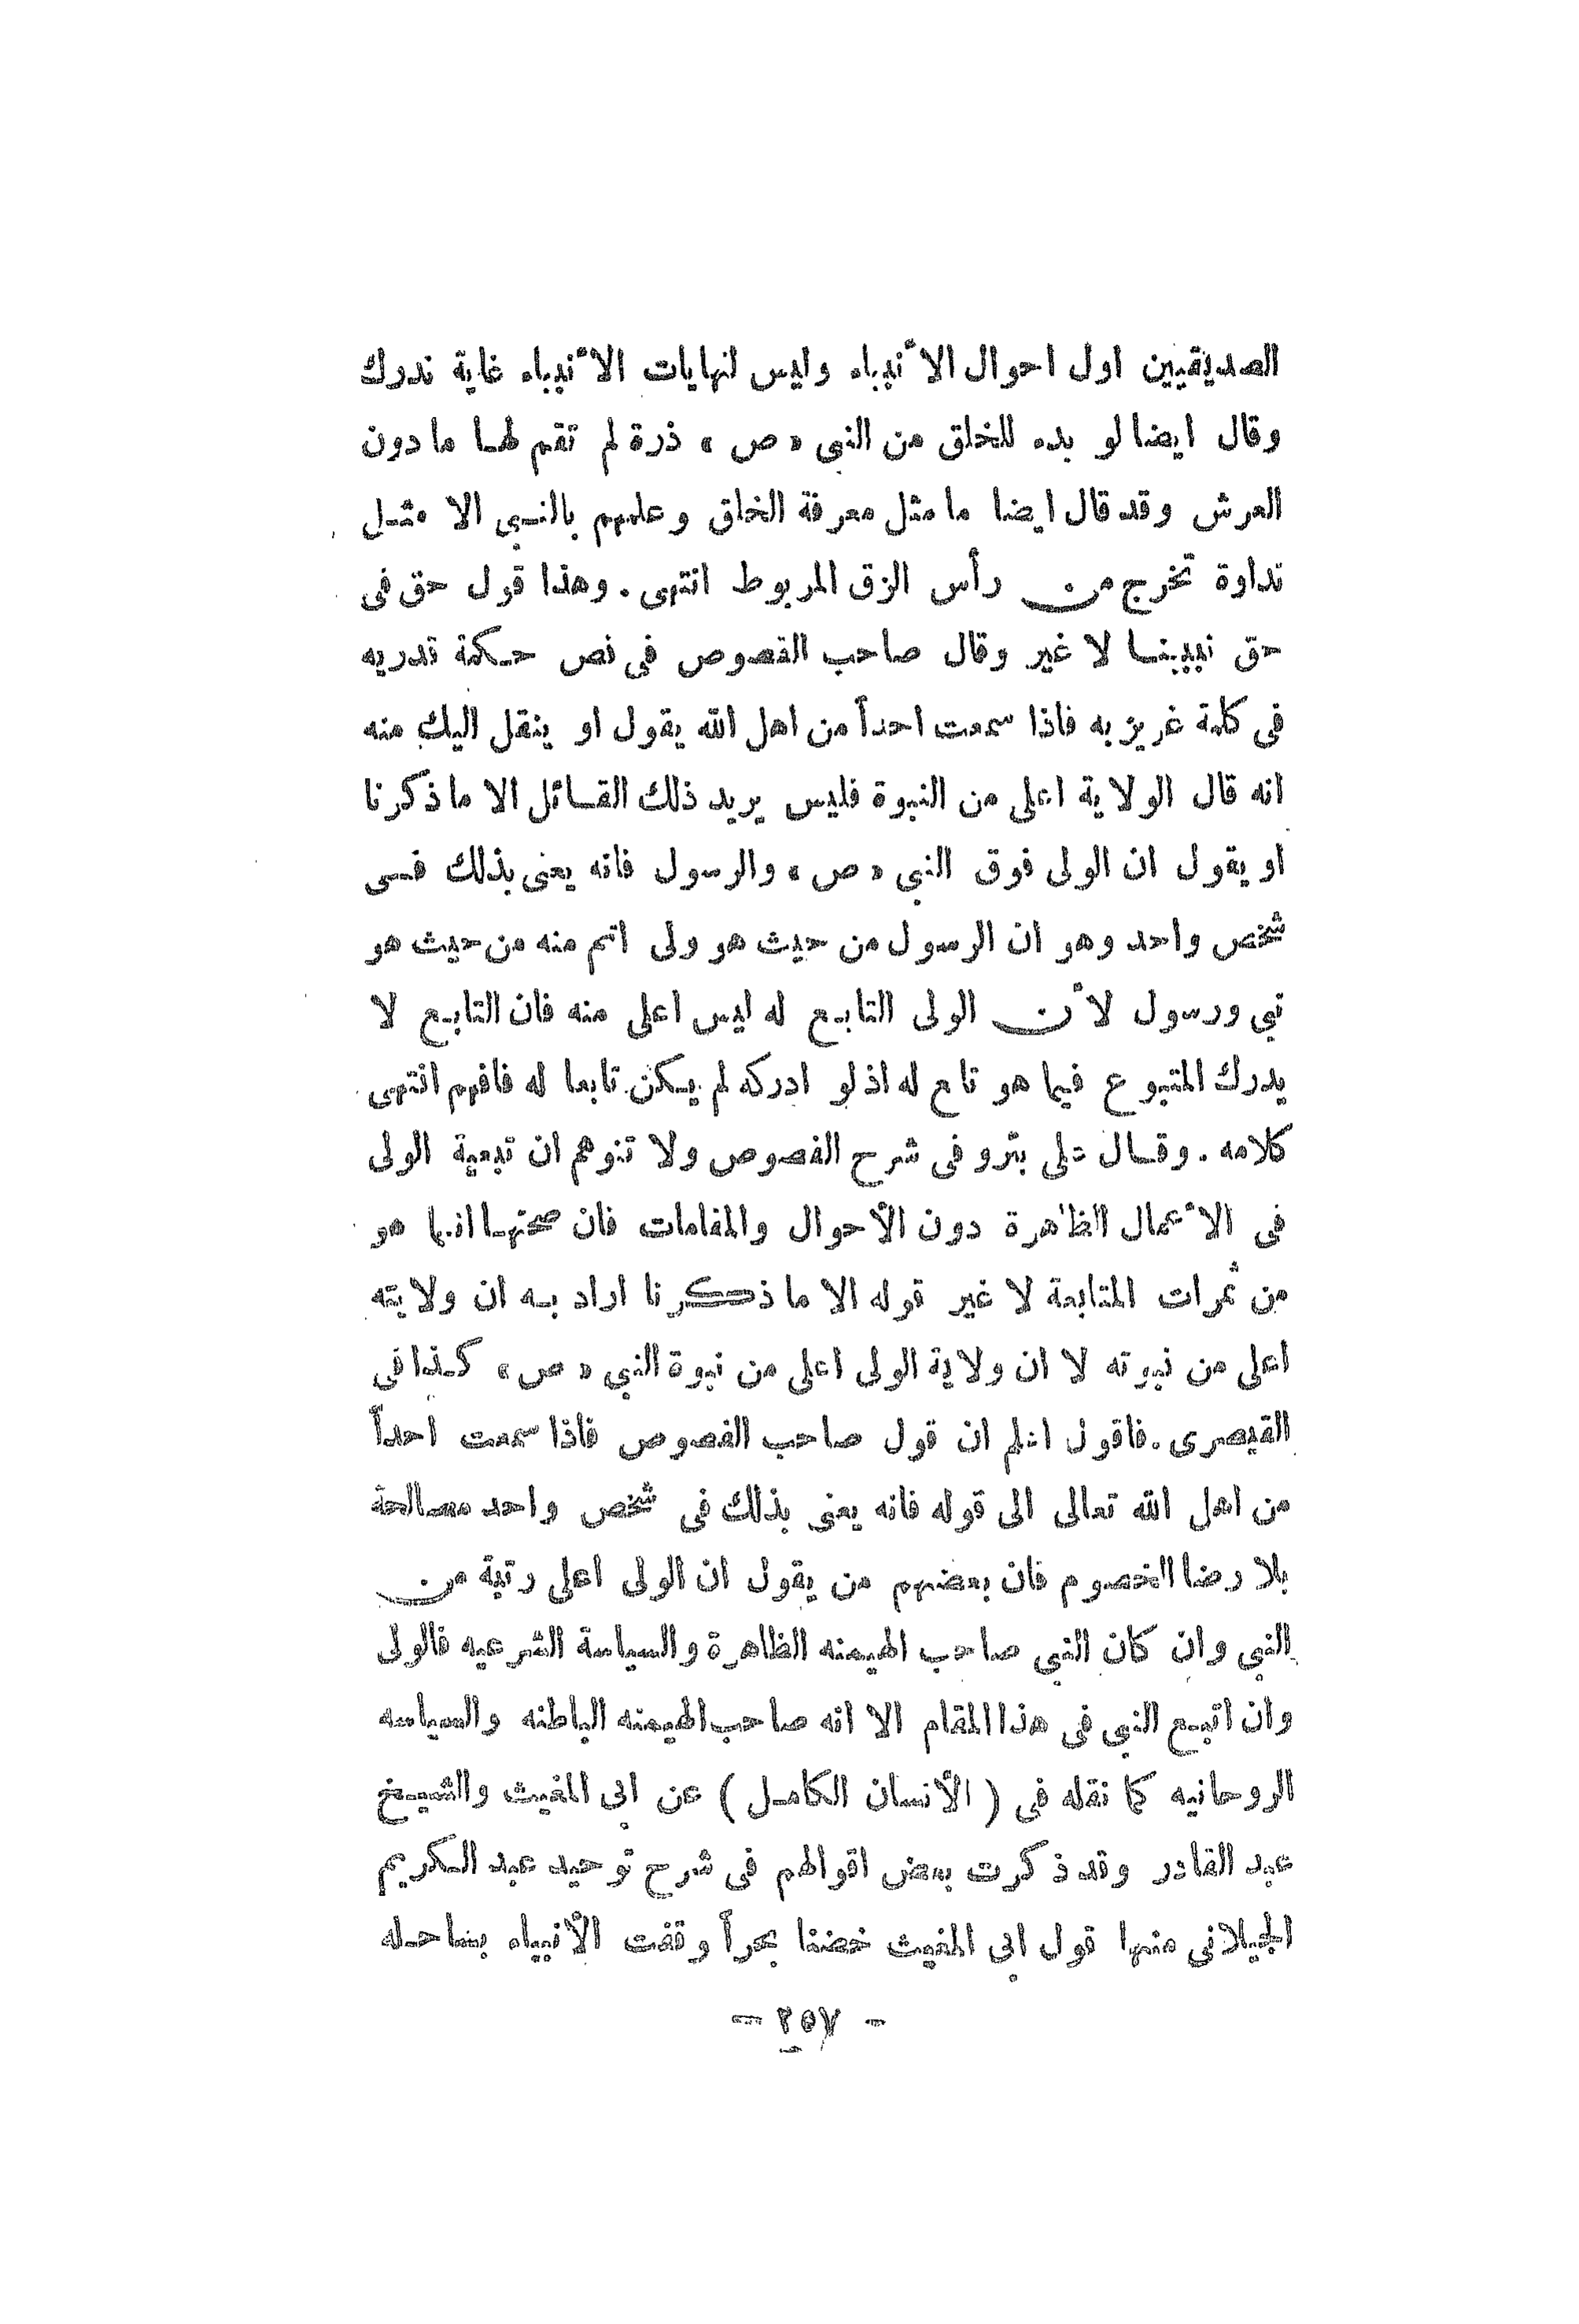 الصديقيين اول احوال الأنبياء وليس لنهايات الأنبياء غاية تدرك
وقال ايضا لو بدء للخلق من النبى «ص» ذرة لم تقم لهـا ما دون
العرش وقد قال ايضا ما مثل معرفة الخلق وعلمهم بالنـبى الا مثـل
نداوة تخرج من رأس الزق المربوط انتهى . وهذا قول حق فى
حق نبيينـا لا غير وقال صاحب الفصوص فى نص حـكمة قدريه
فى كلمة عزيزيه فاذا سمعت احداً من اهل الله يقول او ينقل اليك منه
انه قال الولاية اعلى من النبوة فليس يريد ذلك القـائل الا ما ذكرنا
او يقول ان الولى فوق النبى «ص» والرسول فانه يعنى بذلك فـى
شخص واحد وهو ان الرسول من حيث هو ولى اتم منه من حيث هو
نبى ورسول لأن الولى التابـع له ليس اعلى منه فان التابـع لا
يدرك المتبوع فيما هو تابع له اذ لو ادركه لم يـكن تابعا له فافهم انتهى
كلامه . وقـال على بترو فى شرح الفصوص ولا تتوهم ان تبعية الولى
فى الأعمال الظاهرة دون الأحوال والمقامات فان صحتهـا انما هو
من ثمرات المتابعة لا غير قوله الا ما ذكرنا اراد بـه ان ولايته
اعلى من نبوته لا ان ولاية الولى اعلى من نبوة النبى «ص» كـذا فى
القيصرى . فاقول اعلم ان قول صاحب الفصوص فاذا سمعت احداً
من اهل الله تعالى الى قوله فانه يعنى بذلك فى شخص واحد مصالحة
بلا رضا الخصوم فان بعضهم من يقول ان الولى اعلى رتبة من
النبى وان كان النبى صاحب الهيمنه الظاهرة والسياسة الشرعيه فالولى
وان اتبـع النبى فى هذا المقام الا انه صاحب الهيمنه الباطنه والسياسه
الروحانيه كما نقله فى ( الأنسان الكامـل ) عن ابى المغيث والشيـخ
عبد القادر وقد ذكرت بعض اقوالهم فى شرح توحيد عبد الـكريم
الجيلانى منها قول ابى المغيث خضنا بحراً وقفت الأنبياء بساحـله
- ٢٥٧ -